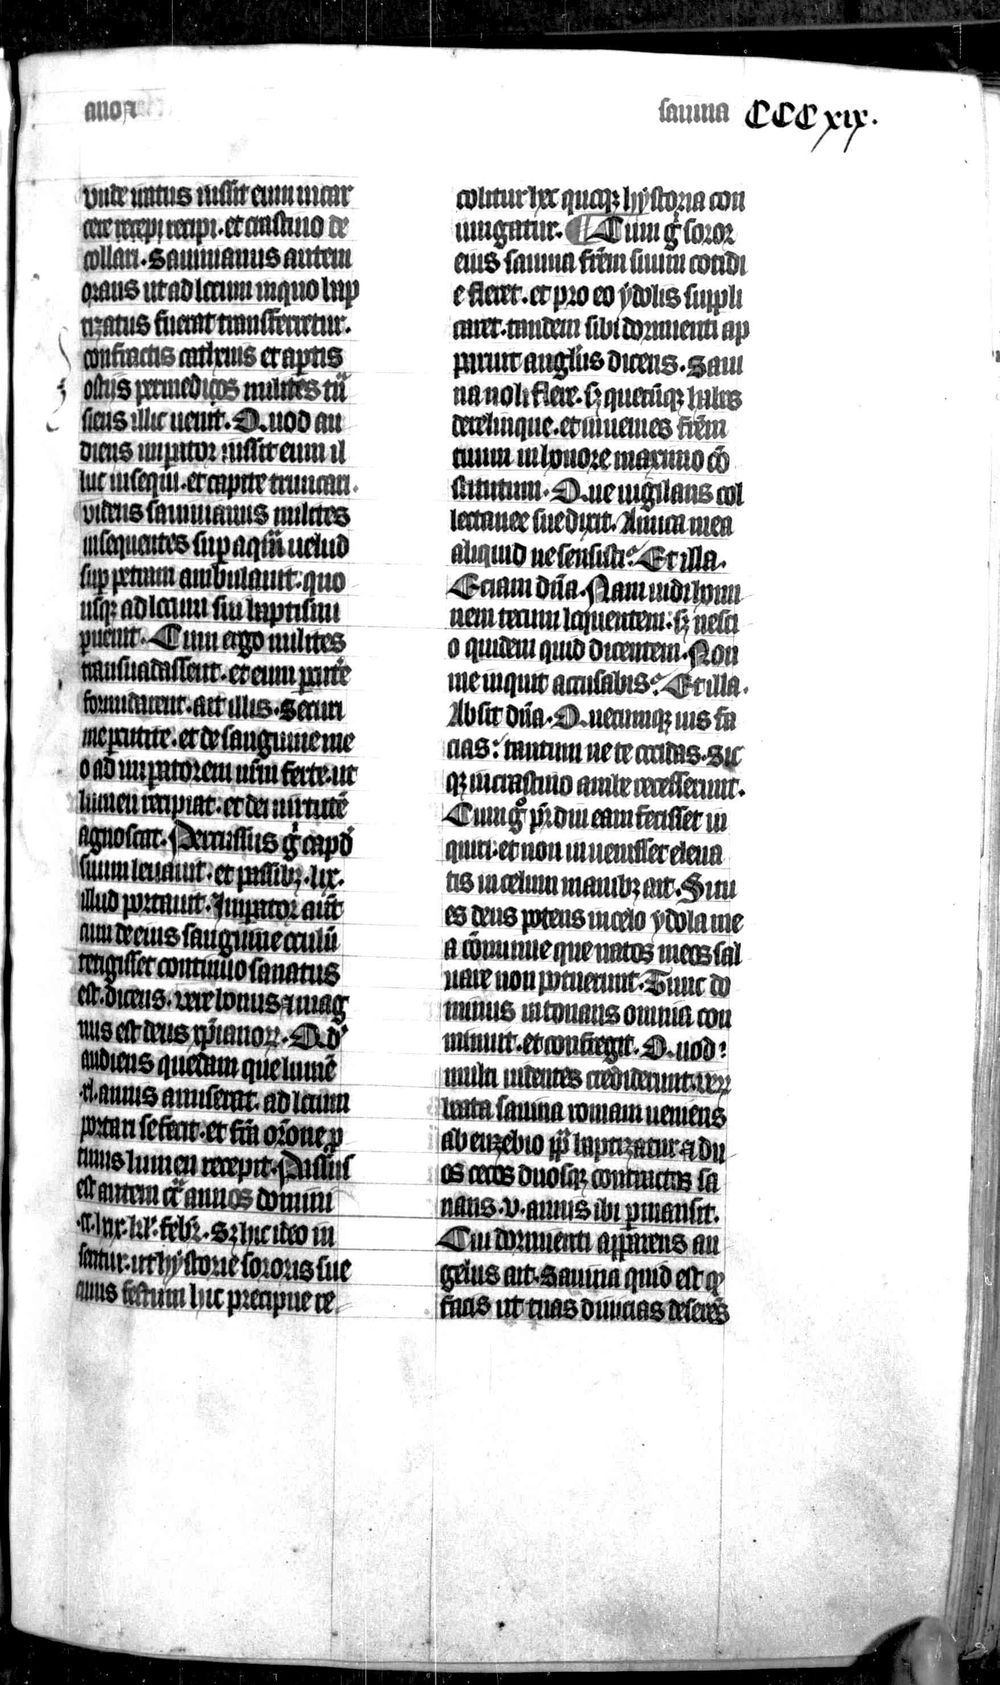 sauina CCCxix.
vnde iratus iussit eum in car
cere recepi recipi. et crastino de
collari. Sauinianus autem
orans ut ad locum in quo bap
tizatus fuerat transferretur.
confractis cathenis et aptis
ostiis per medi9os milites tn̄
siens illic uenit. Quod au
diens imp̲ator iussit eum il
luc insequi. et capite truncari.
videns sauinianus milites
insequentes sup̲ aqͣm uelud
sup̲ petram ambulauit: quo
usqꝫ ad locum sui baptismi
p̲uenit. Cum ergo milites
transuadassent. et eum p̲cut̾e
formidarent. ait illis. Securi
me p̲cutite. et de sanguine me
o ad imp̲atorem nr̄m ferte. ut
lumen recipiat. et dei uirtutē
agnoscat. Percussus gͦ capđ
suum leuauit. et passibꝫ .lix.
illud portauit. Imp̲ator aūt
cum de eius sanguine oculū
tetigisset continuo sanatus
est. dicens. vere bonus ⁊ mag
nus est deus xp̄ianoꝝ. Qđ
audiens quedam que lumē
.xl. annis amiserat. ad locum
portari se fecit. et fc̄a or̄one p̲
tinus lumen recepit. Passus
est autem cͣ annos domini
.cc.lxx. kl̄. febr̄. Sꝫ hic ideo in
seritur. ut hystorie sororis sue
cuius festum hic precipue re
colitur hec quoqꝫ hystoria con
iungatur. Cum gͦ soror
eius sauina fr̄em suum cotidi
e fleret. et pro eo ydolis suppli
caret. tandem sibi dormienti ap
paruit angl̄us dicens. Saui
na noli flere. sꝫ quecūqꝫ habes
derelinque. et inuenies fr̄em
tuum in honore maximo cō
stitutum. Que uigilans col
lectanee sue dixit. Amica mea
aliquid ne sensisti? Et illa.
Eciam dn̄a. Nam uidi homi
nem tecum loquentem: sꝫ nesci
o quidem quid dicentem. Non
me inquit accusabis? Et illa.
Absit dn̄a. Quecumqꝫ uis fa
cias: tantum ne te occidas. Sic
qꝫ in crastino ambe recesserunt.
Cum gͦ pr̄ diu eam fecisset in
quiri. et non inuenisset eleua
tis in celum manibꝫ ait. Si tu
es deus potens in celo ydola me
a cōminue que natos meos sal
uare non potuerunt. Tunc do
minus intonans omnia con
minuit. et confregit. Quod
multi uidentes crediderunt. verꝝ
beata sauina romam ueniens
ab euzebio pp̄ baptizatur ⁊ du
os cecos duosqꝫ contractos sa
nans .v. annis ibi p̲mansit.
Cui dormienti apparens an
gelus ait. Sauina quid est qꝫ
facis ut tuas diuicias deser̾es